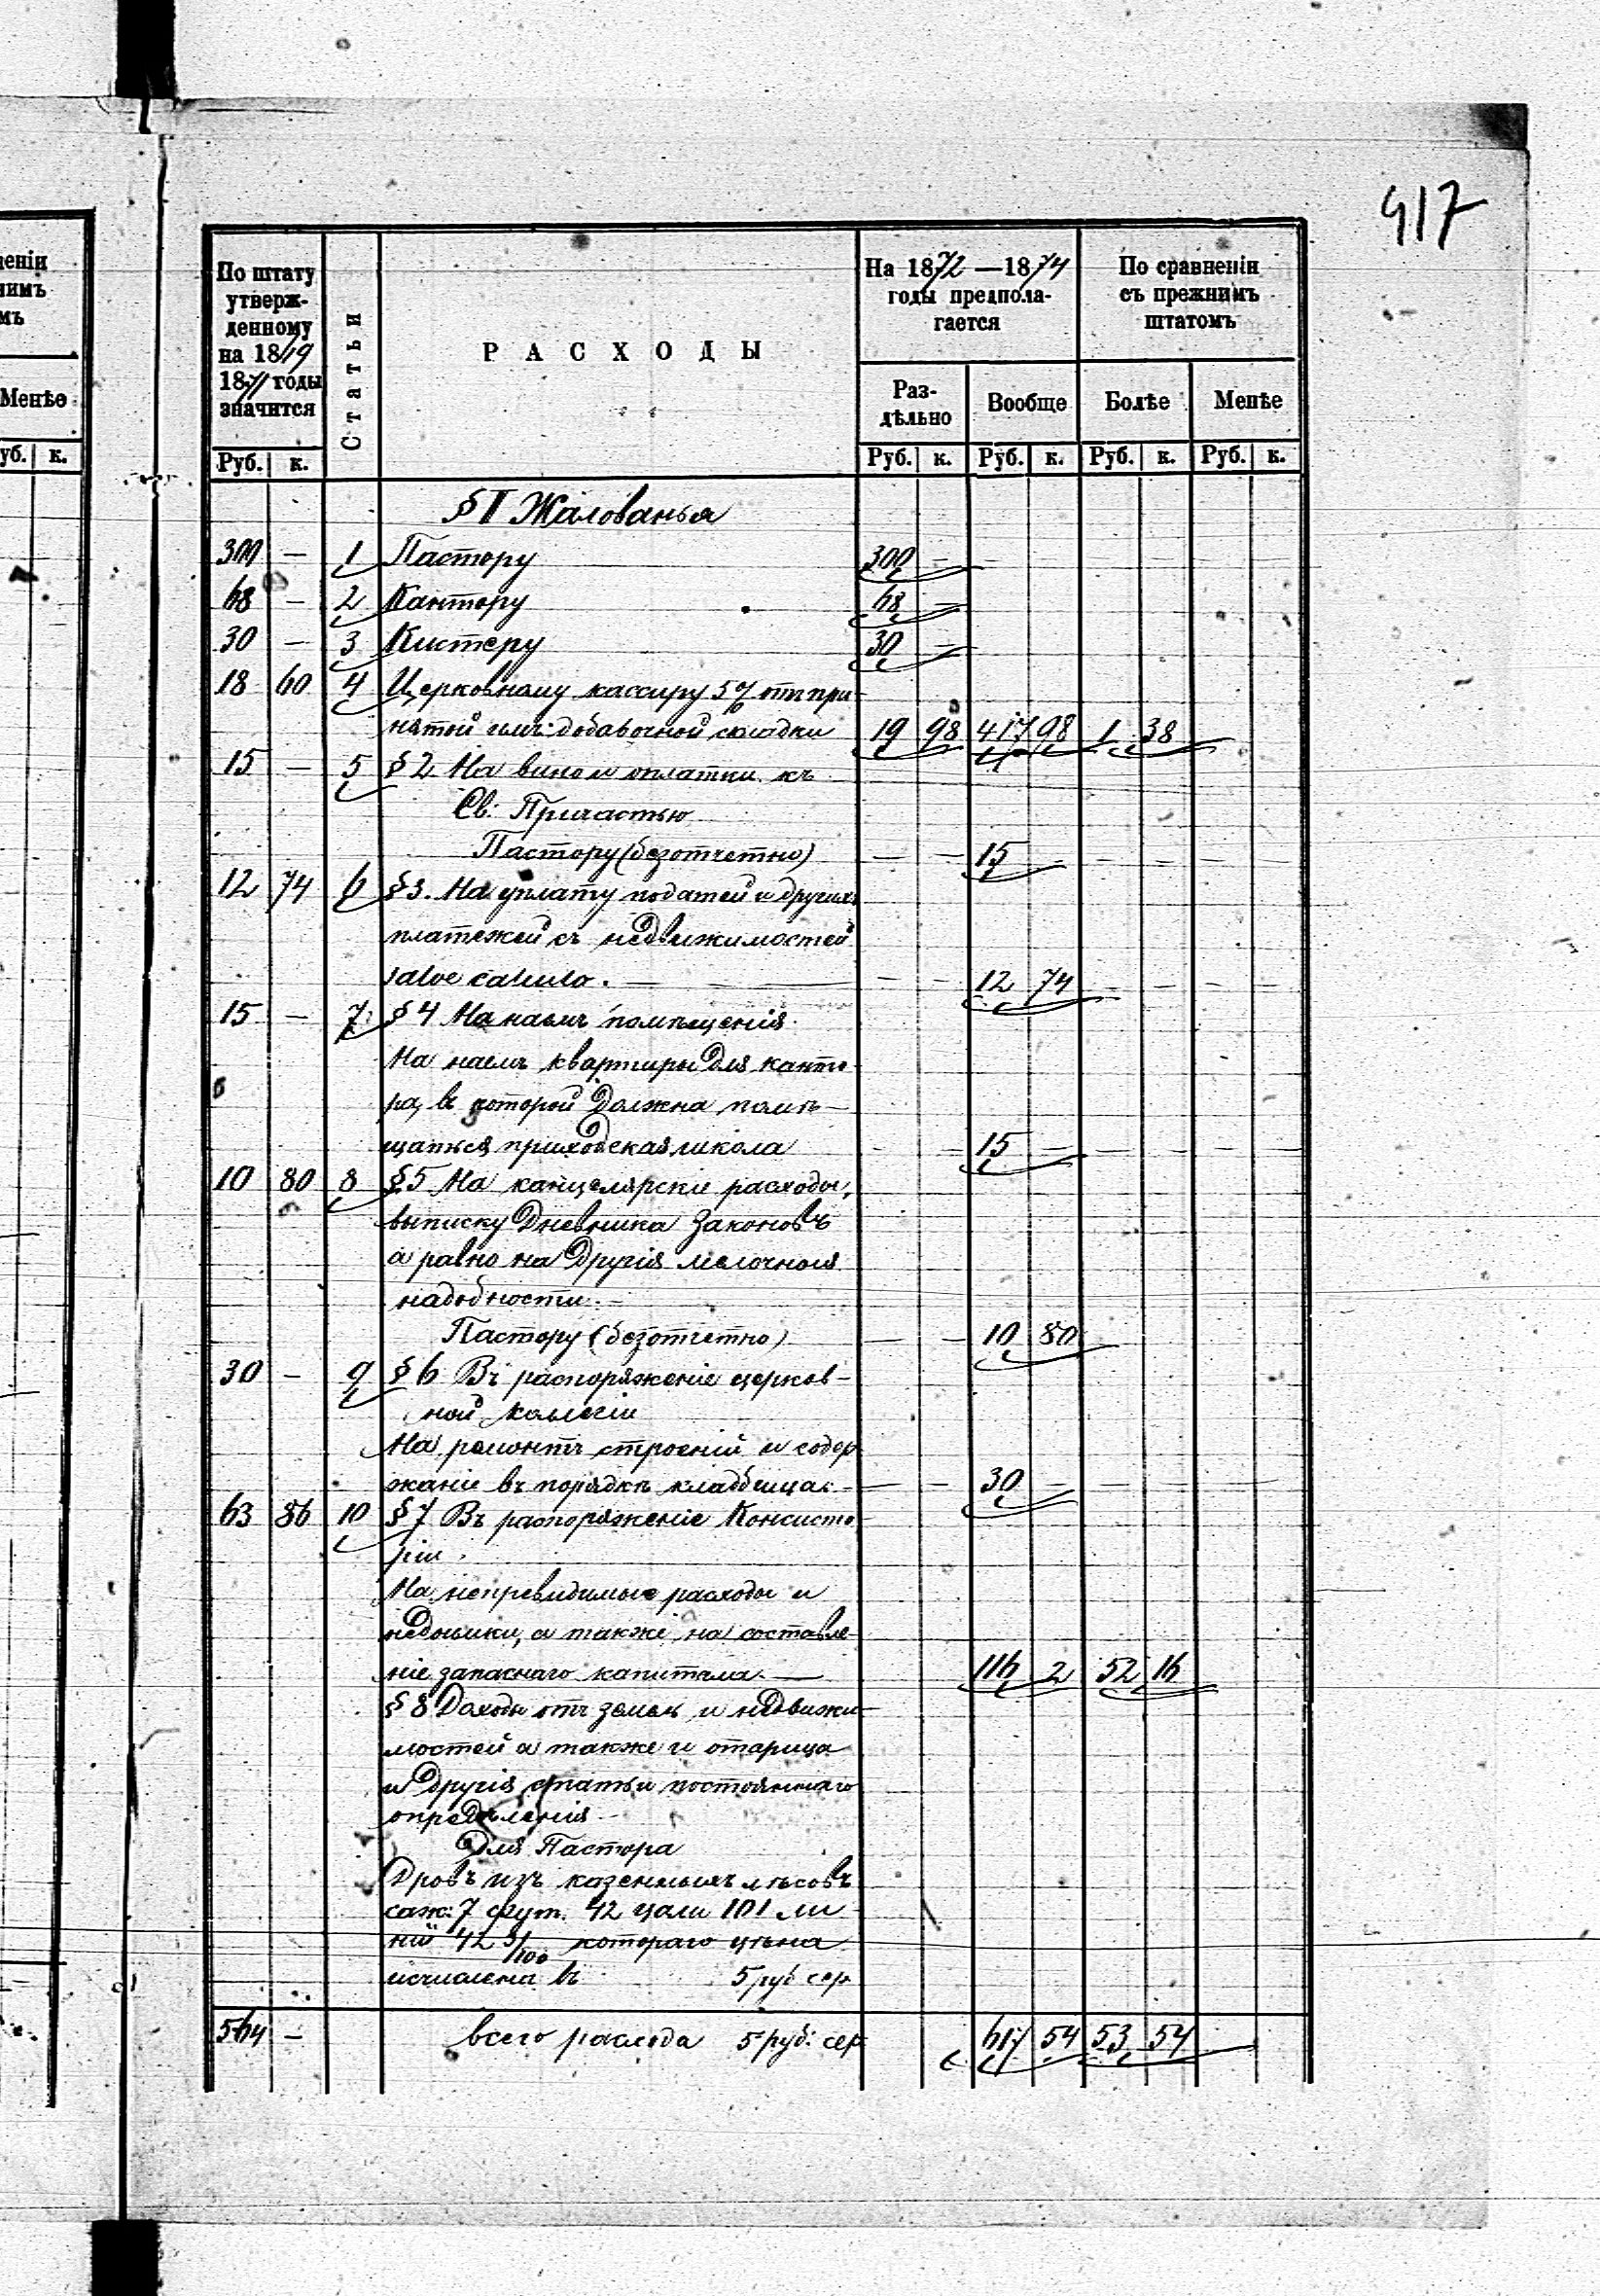 417
ченіи
нимъ
мъ
Менѣе
уб. к.
По штату утверж-денному на 1869 1871 годы значится
Статьи
РАСХОДЫ
На 1872—1874 годы предпола-гается
По сравненіи съ прежнимъ штатомъ
Раз-дѣльно
Вообще
Болѣе
Менѣе
Руб. к. Руб. к. Руб. к. Руб. к. Руб. к.
§ I Жалованья
300 — 1 Пастору 300 —
68 — 2 Кантору 68 —
30 — 3 Кистеру 30 —
18 60 4 Церковному кассиру 5% отъ при-
нятой имъ добавочной складки 19 98 417 98 1 38
15 — 5 § 2 На вино и оплатки къ
Св. Причастью
Пастору (безотчетно) — — 15 — — — — —
12 74 6 § 3. На уплату податей и другихъ
платежей съ недвижимостей
salvo calculo. — — — 12 74 — — — —
15 — 7 § 4 На наемъ помѣщенія
На наемъ квартиры для канто-
ра, въ которой должна помѣ-
щаться приходская школа — — 15 — — — — —
10 80 8 § 5 На канцелярскіе расходы,
выписку Дневника Законовъ
а равно на другія мелочныя
надобности. —
Пастору (безотчетно) — — 10 80
30 — 9 § 6 Въ распоряженіе церков-
ной коллегіи
На ремонтъ строеній и содер
жаніе въ порядкѣ кладбища. — — — 30 —
63 86 10 § 7 Въ распоряженіе Консисто
ріи.
На непревидимые расходы и
недоимки, а также на составле-
ніе запаснаго капитала. — 116 2 52 16
§ 8 Доходы отъ земель и недвижи-
мостей а также и
и другія статьи постояннаго
опредѣленія
Для Пастора
Дровъ изъ казенныхъ лѣсовъ
саж. 7 фут. 42 цали 101 ли
ній 42 3/100 котораго цѣна
исчислена въ 5 руб сер
564 — всего расхода 5 руб. сер 617 54 53 54